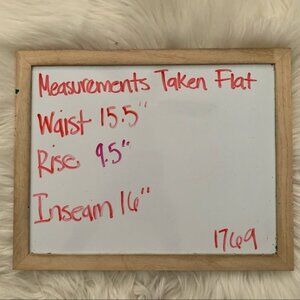 Measurements Taken Flat
Waist 15.5"
Rise 9.5"
Inseam 16"
1769